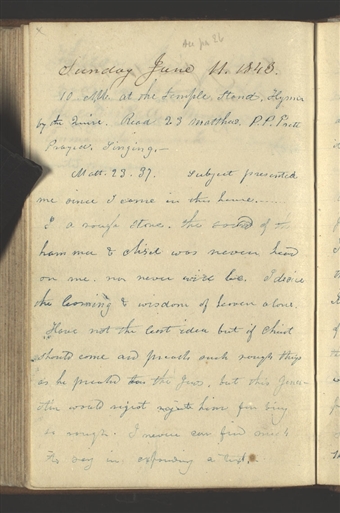 See pa 26
Sunday June 11. 1843.
10 A.M. at the Temple, Stand. Hymn
by the Quire. Read 23 Matthew. P. P. Pratt
Prayed. Singing.—
Matt. 23. 37. Subject presented
me since I came in this house.....
I a rough stone. the sound of the
hammer & chisel was never heard
on me. nor never will be. I desire
the learning & wisdom of heaven alone.
Have not the least idea but if Christ
should come and preach such rough things
as he preached to the Jews, but this Gener-
ation would reject him for being
so rough. I never can find much
to say in expounding a text.